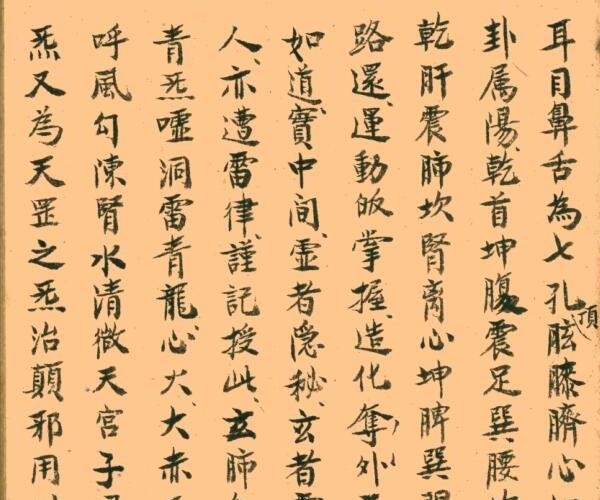 耳目鼻舌為七孔頂眩膝臍心
卦属陽乾首坤腹震足巽腰
乾肝震肺坎腎离心坤脾巽
路還運動皈掌握造化奪外
如道寶中间霊者隐秘玄者
人亦遭雷律謹記授此玄肺
青炁嘘洞雷青龍心火大赤
呼風勾陳腎水清微天宮子
炁又為天罡之炁治顛邪用